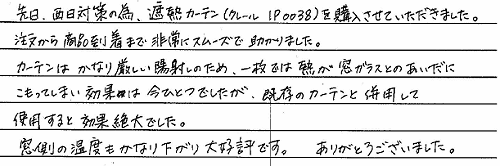 先日、西日対策の為、遮熱カーテン(クレール IP0038)を購入させていただきました。
注文から商品到着まで非常にスムーズで助かりました。
カーテンはかなり厳しい陽射しのため、一枚では熱が窓ガラスとのあいだに
こもってしまい効果は今ひとつでしたが、既存のカーテンと併用して
使用すると効果絶大でした。
窓側の温度もかなり下がり大好評です。 ありがとうございました。